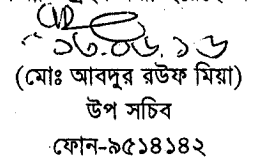 ১৩.০৬.১৬
(মোঃ আবদুর রউফ মিয়া)
উপ সচিব
ফোন-৯৫১৪১৪২